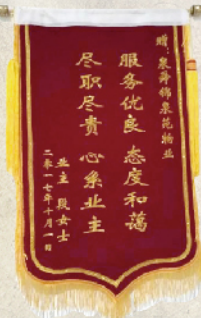 赠：泉舜锦泉苑物业
服务优良 态度和蔼
尽职尽责 心系业主
业主 段女士
二零一七年十月一日